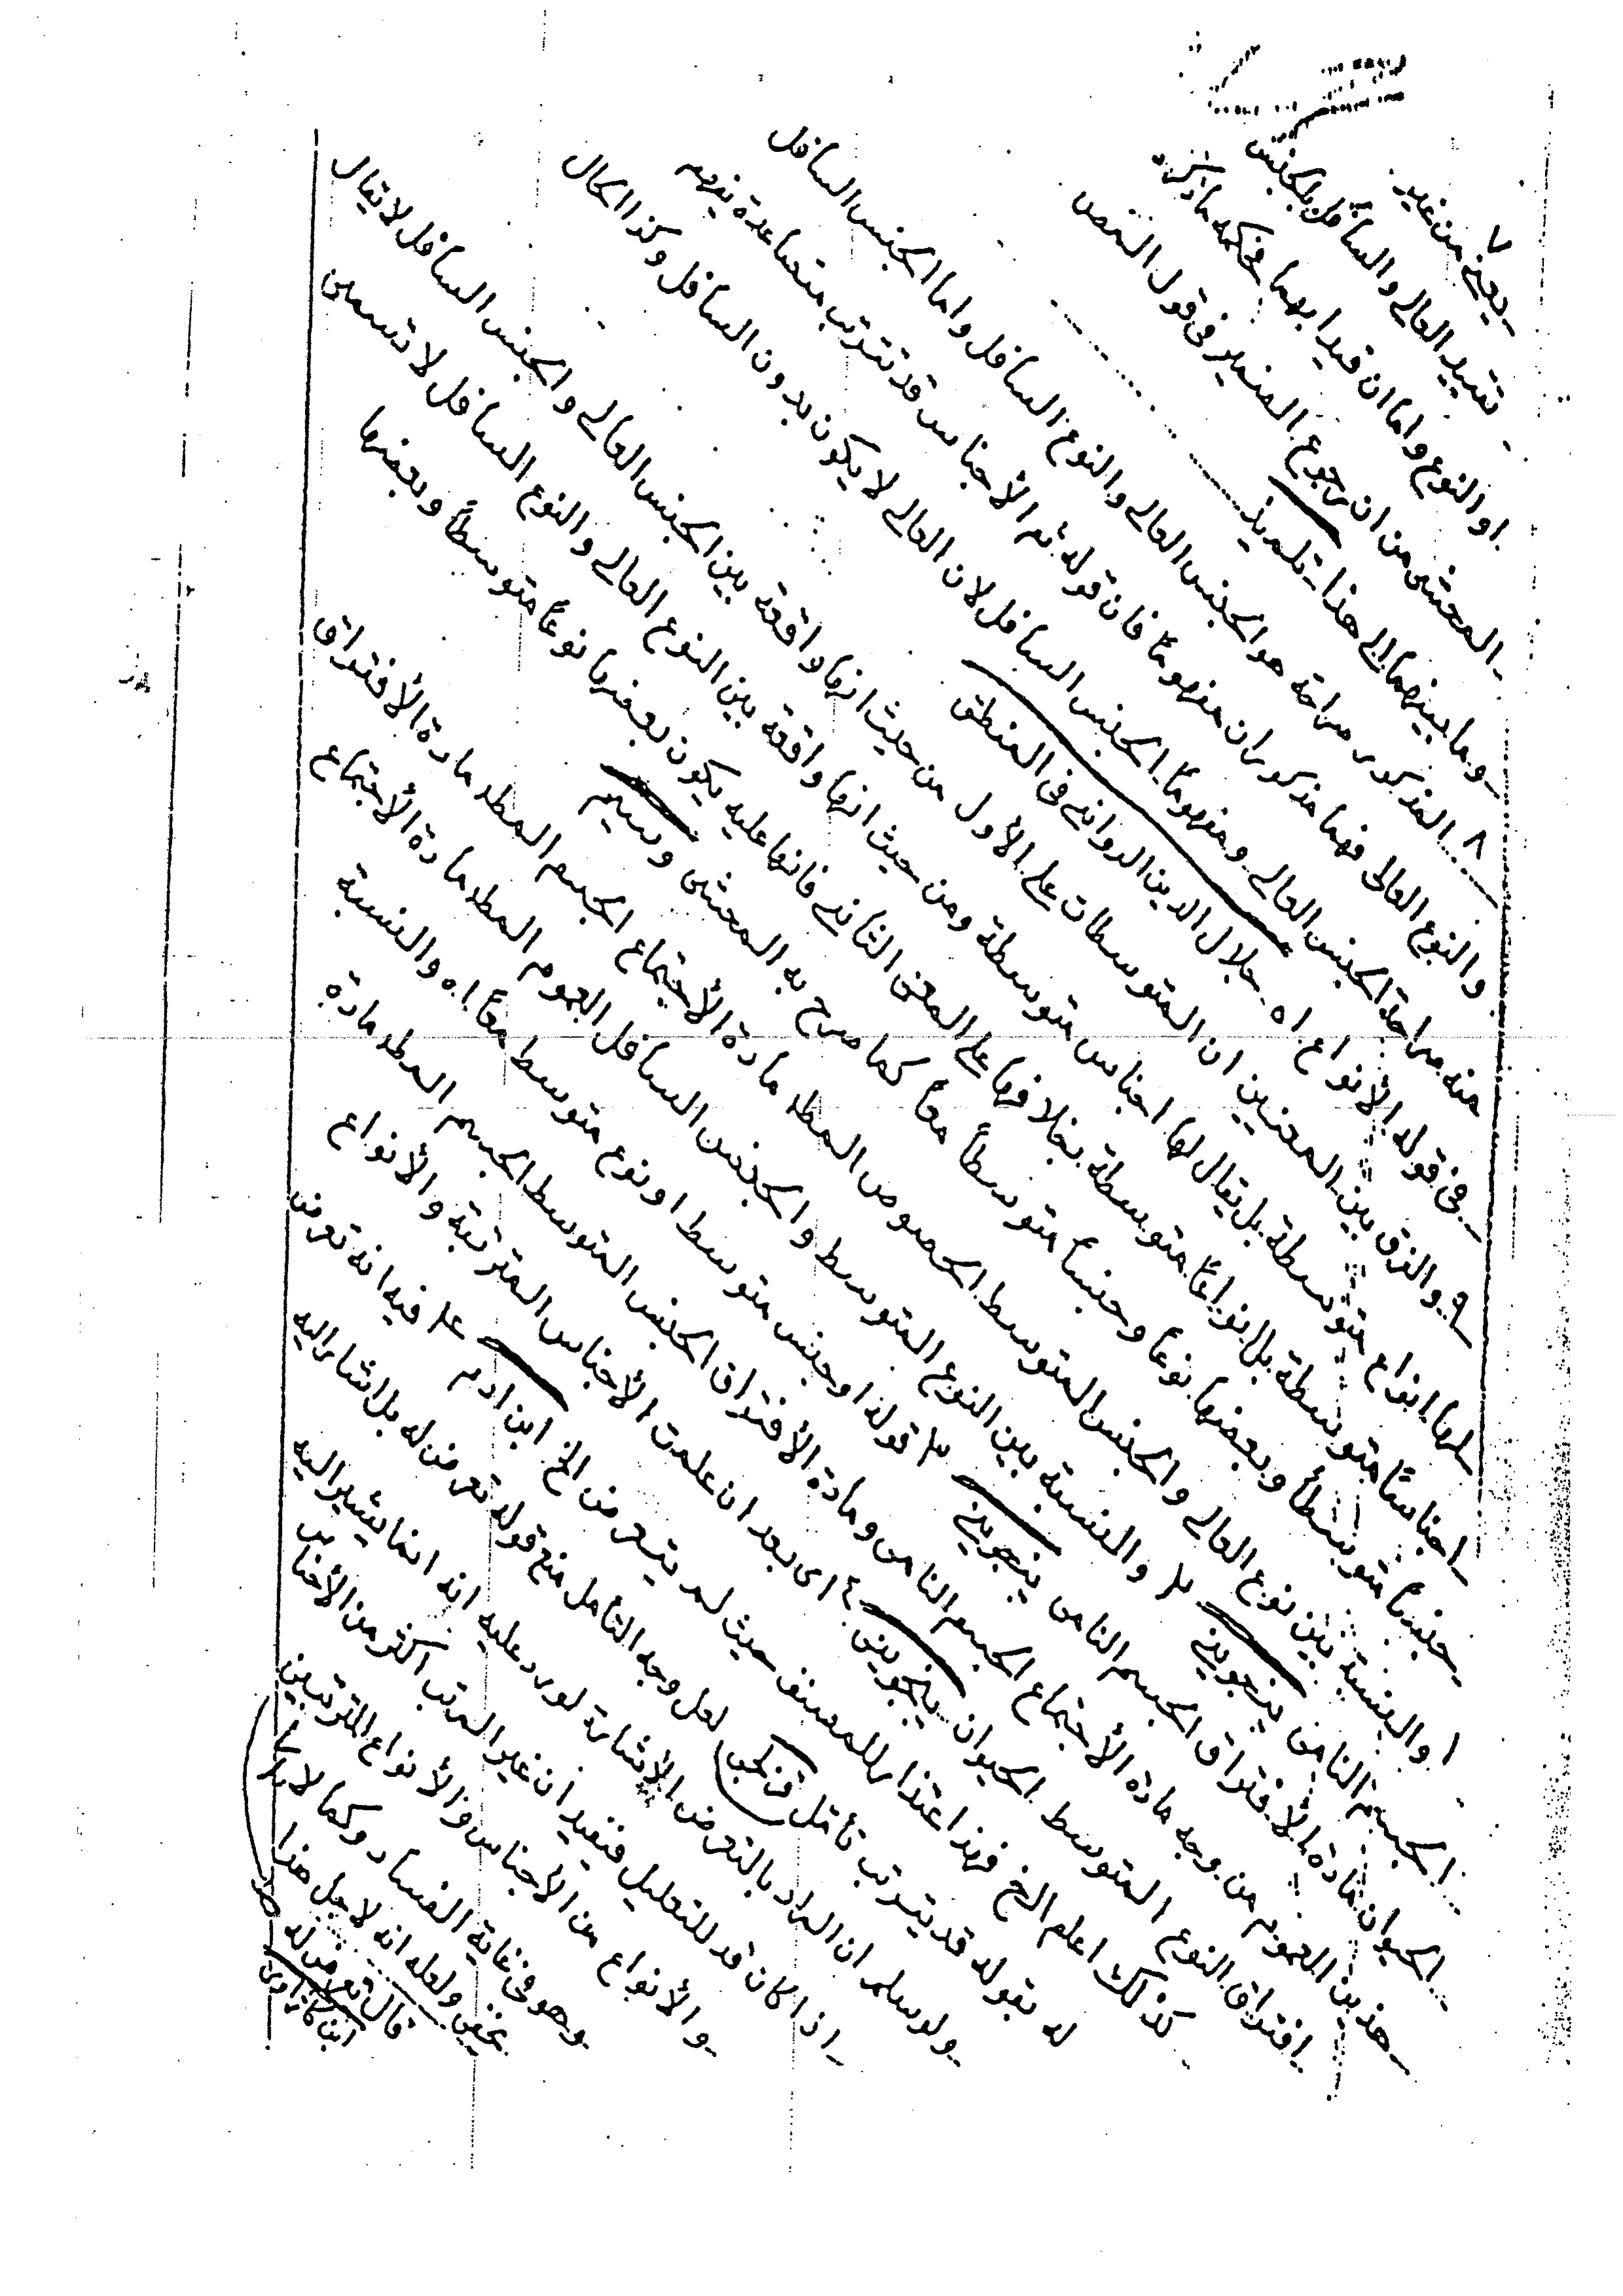 ٧
يعني من غير
تقييد العالي والسافل بالجنس
او النوع واما ان قيدا بهما فحكمه ما ذكره
المحشي من ان رجوع الضمير في قول المص
وما بينهما الى هذا
٨ المذكور صراحة هو الجنس العالي والنوع السافل واما الجنس السافل
والنوع العالي فهما مذكوران مفهوما فان قوله ثم الأجناس قد تترتب متصاعدة يفهم
منه صراحة الجنس العالي ومفهوما الجنس السافل لان العالي لا يكون بدون السافل وكذا الحال
في قوله الأنواع اه جلال الدين الدواني في المنطق
٩ والفرق بين المعنيين ان المتوسطات على الأول من حيث انها واقعة بين الجنس العالي والجنس السافل لا يقال
لها انواع متوسطة بل يقال لها اجناس متوسطة ومن حيث انها واقعة بين النوع العالي والنوع السافل لا تسمى
اجناسا متوسطة بل انواعا متوسطة بخلافها على المعنى الثاني فانها عليه يكون بعضها نوعا متوسطا وبعضها
جنسا متوسطا وبعضها نوعا وجنسا متوسطا معا كما صرح به المحشي وسيم
١ والنسبة بين نوع العالي والجنس المتوسط الخصوص المط مادة الأجتماع الجسم المط مادة الأفتراق
الجسم النامي ينجويني ٢ والنسبة بين النوع المتوسط والجنس السافل العموم المط مادة الأجتماع
الحيوان مادة الأفتراق الجسم النامي ينجويني ٣ قوله او جنس متوسط او نوع متوسط معا اه والنسبة
هذين العموم من وجه مادة الأجتماع الجسم النامي ومادة الأفتراق الجنس المتوسط الجسم المط مادة
افتراق النوع المتوسط الحيوان ينجويني ٤ اي بعد ان علمت الأجناس المترتبة والأنواع
كذلك اعلم الخ فهذا اعتذار للمصنف حيث لم يتعرض الخ ابن ادم ع فيه انه تعرض
له بقوله قد يترتب تأمل قزلجي لعل وجه التأمل منع قوله تعرض له بل اشار اليه
ولو سلم ان المراد بالتعرض الأشارة لورد عليه انه انما يشير اليه
اذا كان قد للتعليل فتفيد ان غير المرتب اكثر من الأجناس
والأنواع من الأجناس والأنواع المترتبين
وهو في غاية الفساد وكما لا
يخفى ولعله انه لاجل هذا
قال تعرض له